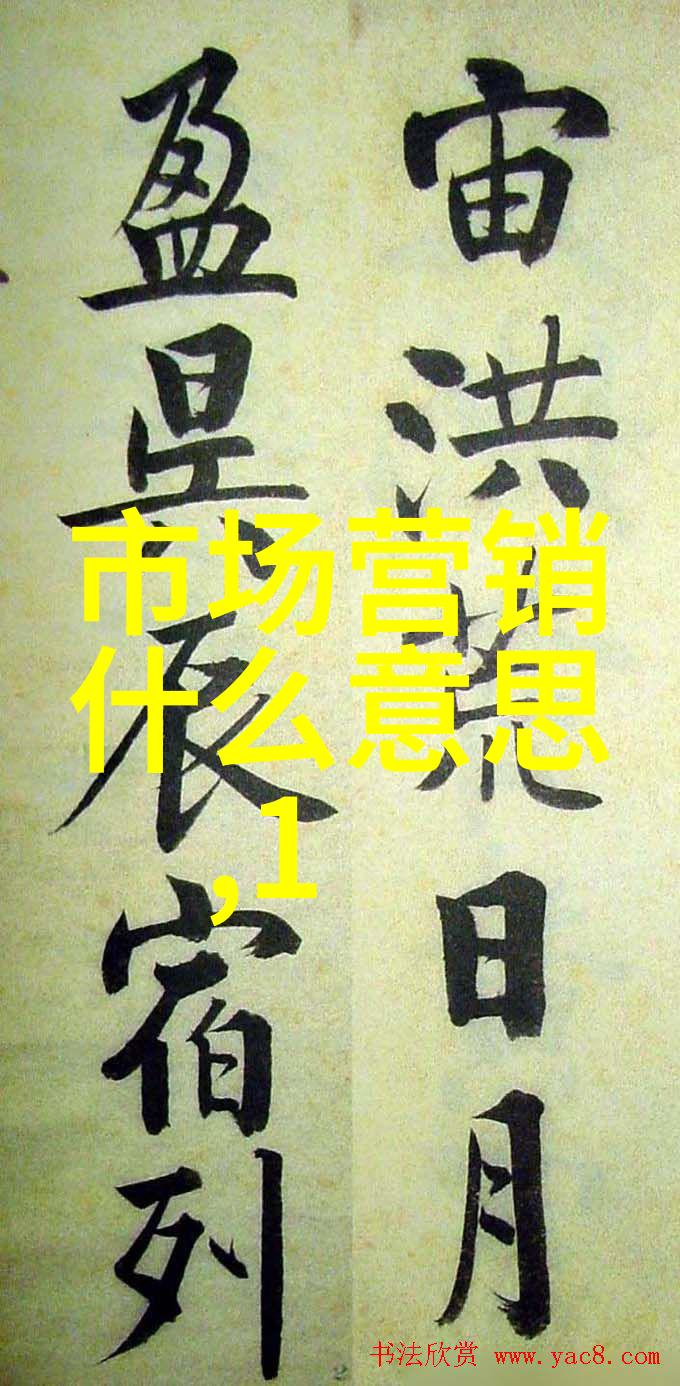 宙洪荒日月
盈昃辰宿列
市场营销
什么意思
,1
书法欣赏 www.yac8.com